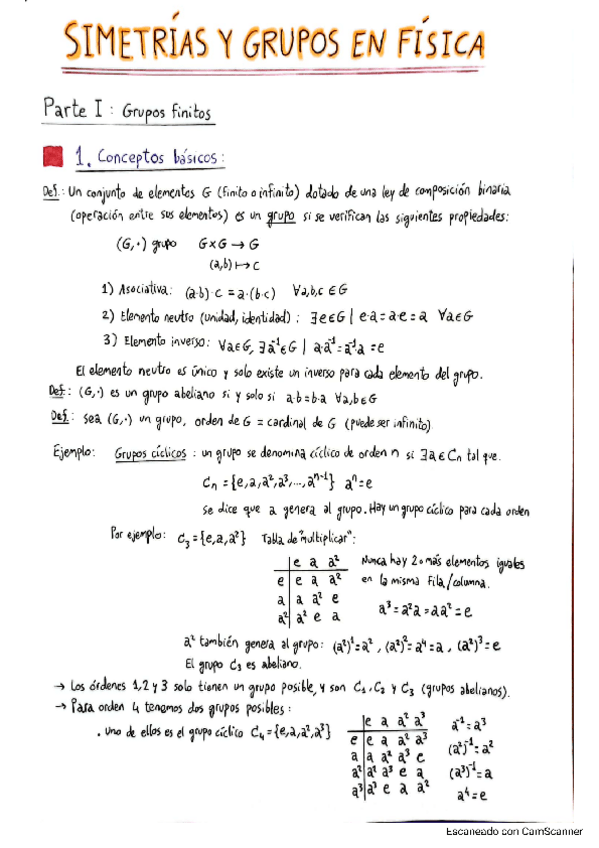 SIMETRÍAS Y GRUPOS EN FÍSICA
Parte I : Grupos finitos
1. Conceptos básicos:
Def.: Un conjunto de elementos G (finito o infinito) dotado de una ley de composición binaria
(operación entre sus elementos) es un grupo si se verifican las siguientes propiedades:
(G,·) grupo G×G → G
(a,b) ↦ c
1) Asociativa: (a·b)·c = a·(b·c) ∀a,b,c ∈ G
2) Elemento neutro (unidad, identidad) : ∃e∈G | e·a = a·e = a ∀a∈G
3) Elemento inverso: ∀a∈G, ∃a⁻¹∈G | a·a⁻¹ = a⁻¹a = e
El elemento neutro es único y solo existe un inverso para cada elemento del grupo.
Def.: (G,·) es un grupo abeliano si y solo si a·b = b·a ∀a,b∈G
Def.: sea (G,·) un grupo, orden de G = cardinal de G (puede ser infinito).
Ejemplo: Grupos cíclicos : un grupo se denomina cíclico de orden n si ∃a∈Cₙ tal que.
Cₙ = {e,a,a²,a³,...,aⁿ⁻¹} aⁿ=e
Se dice que a genera al grupo. Hay un grupo cíclico para cada orden
Por ejemplo: C₃ = {e,a,a²} Tabla de "multiplicar":
e a a²
e e a a²
a a a² e
a² a² e a
Nunca hay 2 o más elementos iguales
en la misma fila/columna.
a³ = a²a = aa² = e
a² también genera al grupo: (a²)¹ = a² , (a²)² = a⁴ = a , (a²)³ = e
El grupo C₃ es abeliano.
→ Los órdenes 1, 2 y 3 solo tienen un grupo posible, y son C₁, C₂ y C₃ (grupos abelianos).
→ Para orden 4 tenemos dos grupos posibles :
. uno de ellos es el grupo cíclico C₄ = {e,a,a²,a³}
e a a² a³
e e a a² a³
a a a² a³ e
a² a² a³ e a
a³ a³ e a a²
a⁻¹ = a³
(a²)⁻¹ = a²
(a³)⁻¹ = a
a⁴ = e
Escaneado con CamScanner